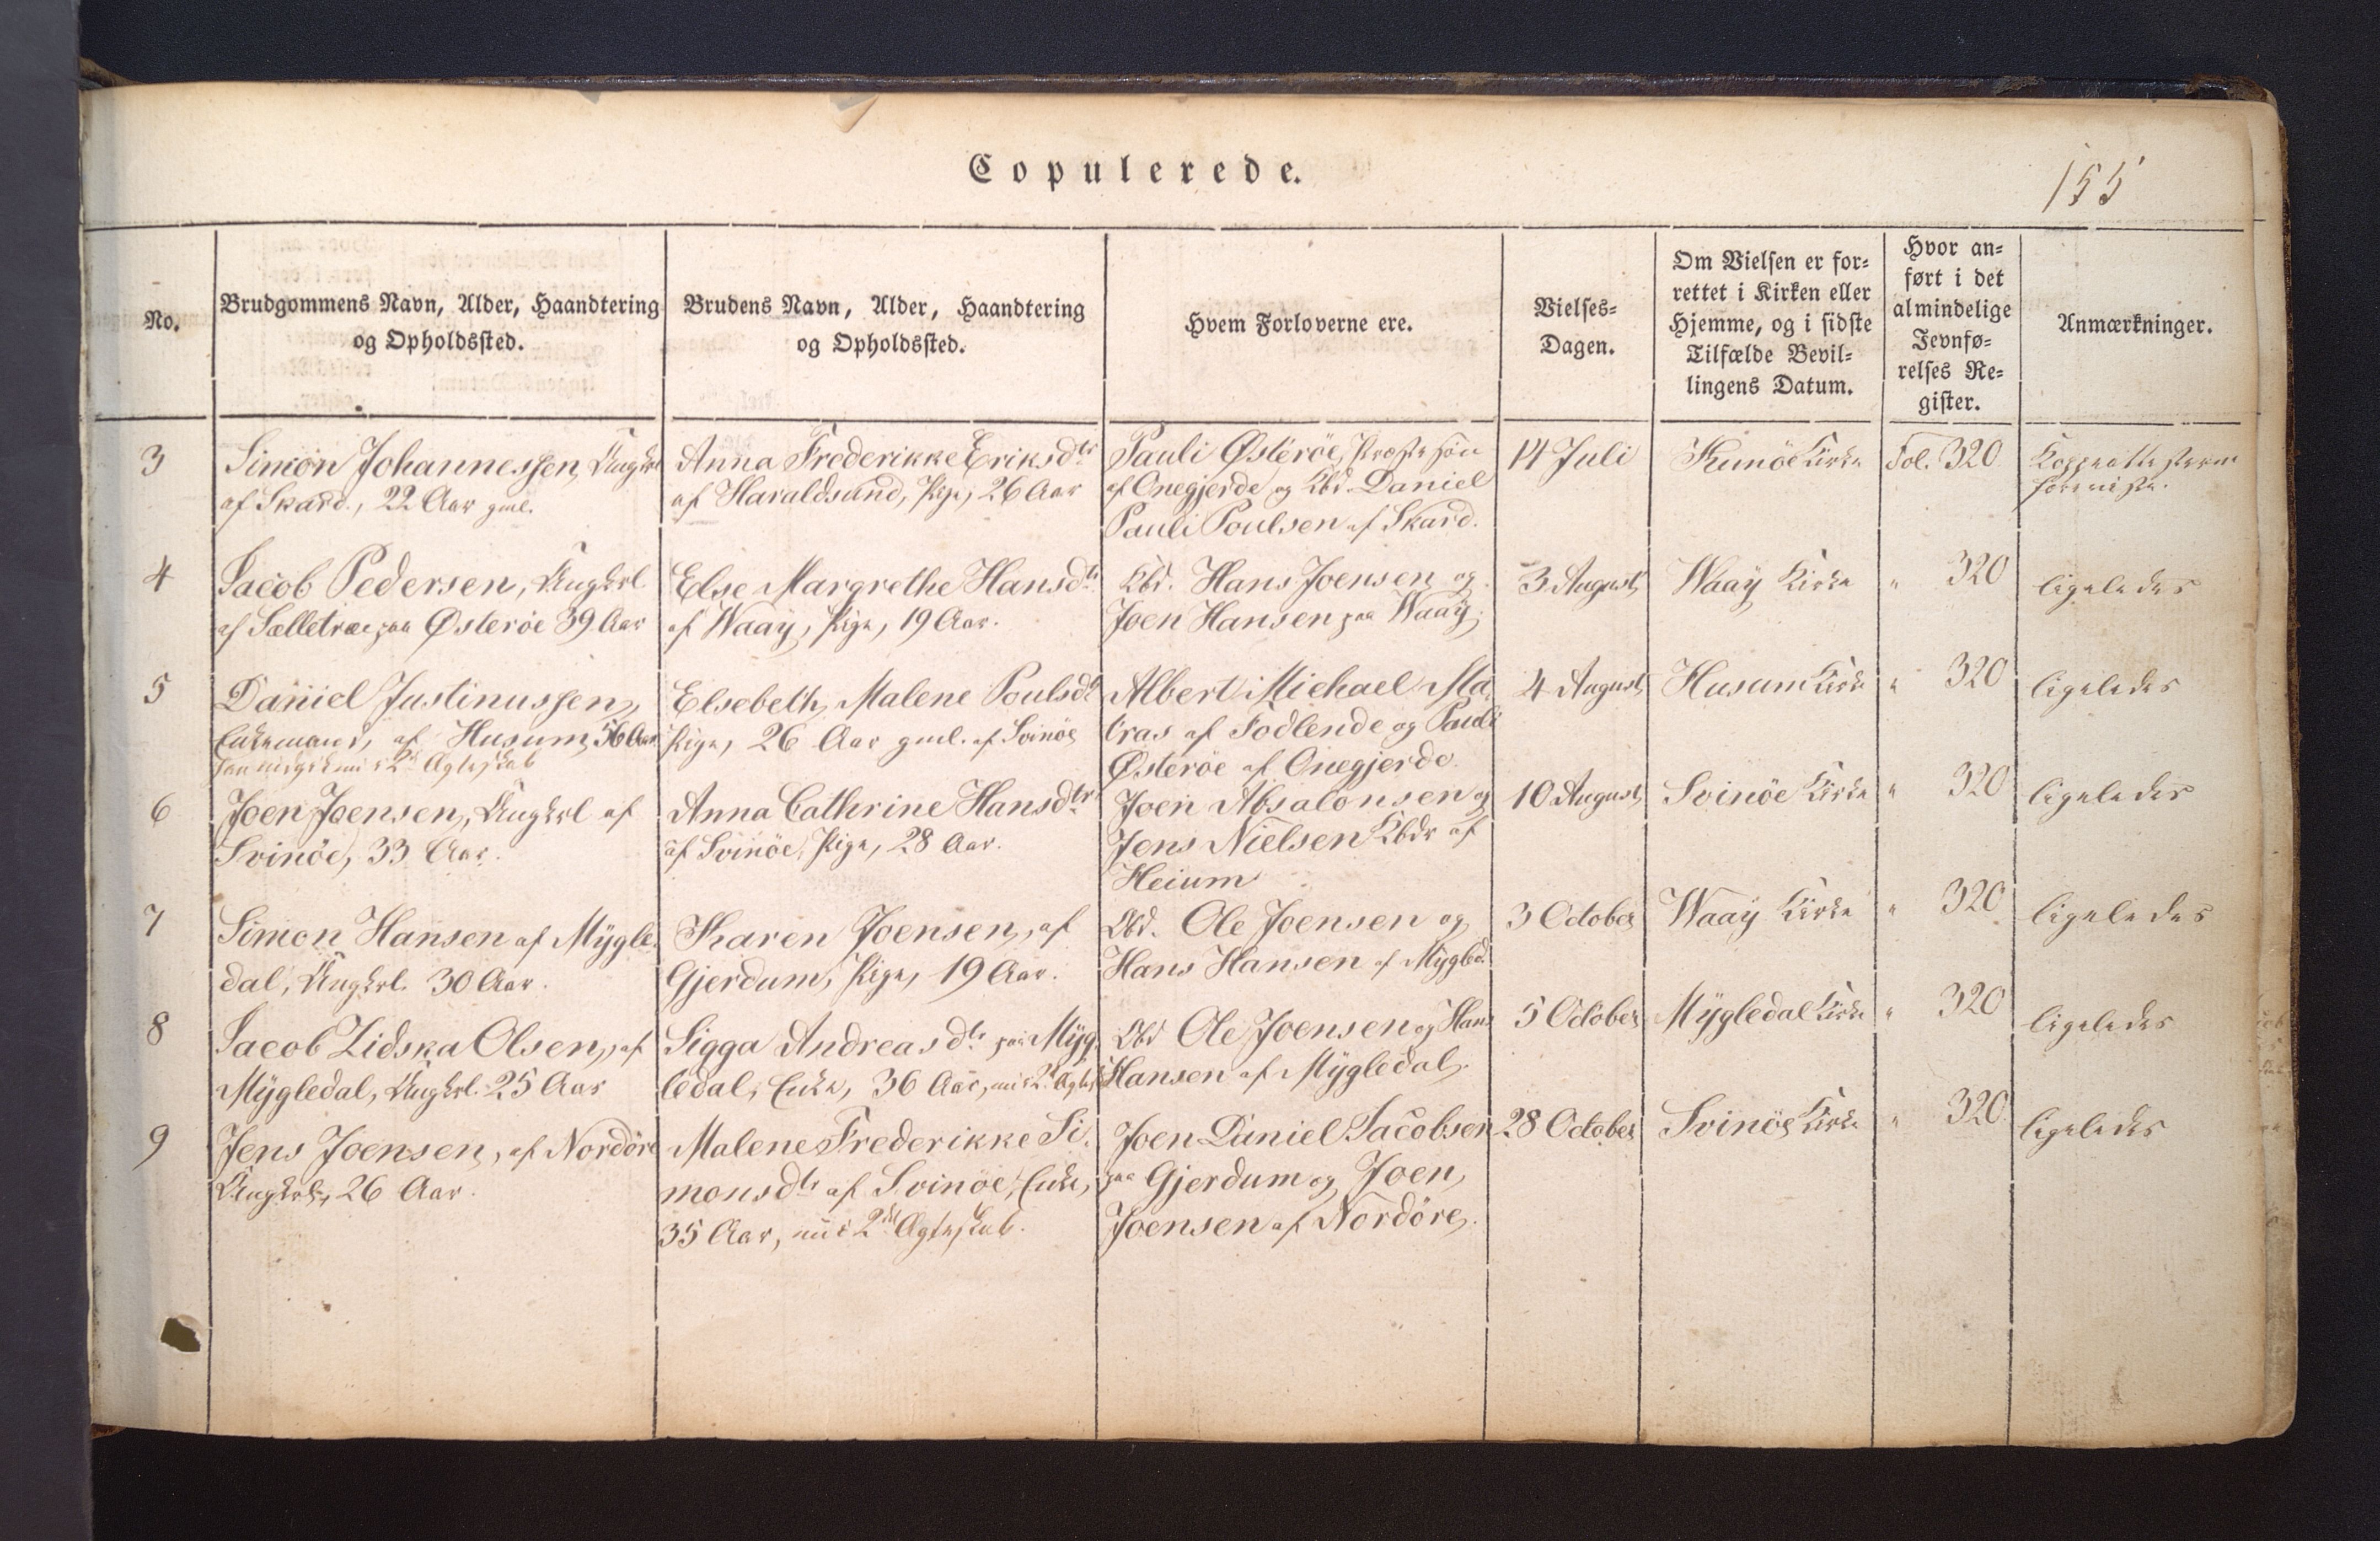 Copulerede.
155
No.
Brudgommens Navn, Alder, Haandtering
og Opholdssted.
Brudens Navn, Alder, Haandtering
og Opholdssted.
Hvem Forloverne ere.
Vielses-
Dagen.
Om Vielsen er for-
rettet i Kirken eller
Hjemme, og i sidste
Tilfælde Bevil-
lingens Datum.
Hvor an-
ført i det
almindelige
Jevnfø-
relses Re-
gister.
Anmærkninger.
3
Simon Johannessen, Ungkrl
af Skard., 22 Aar gml.
Anna Frederikke Eriksdtr
af Haraldsund, Pige, 26 Aar
Pauli Østeröe,
af Onegjerde og Kbd. Daniel
Pauli Poulsen af Skard.
14 Juli
Kunöe Kirke
Fol. 320
4
Jacob Pedersen, Ungkrl
af Sælletræ paa Østeröe 39 Aar
Else Margrethe Hansdtr
af Waaÿ, Pige, 19 Aar.
Kbd. Hans Joensen og
Joen Hansen paa Waaÿ.
3 August
Waaÿ Kirke
" 320
ligeledes
5
Daniel Justinussen,
Enkemand, af Husum, 56 Aar
2det Ægteskab
Elsebeth Malene Poulsdtr
Pige, 26 Aar gml. af Svinöe
Albert Michael Ma-
tras af Fodlende og Pauli
Østeröe af Onegjerde.
4 August
Husum Kirke
" 320
ligeledes
6
Joen Joensen, Ungkrl af
Svinöe, 33 Aar.
Anna Cathrine Hansdtr
af Svinöe, Pige, 28 Aar.
Joen Absalonsen og
Jens Nielsen Kbdr af
Heium
10 August
Svinöe Kirke
" 320
ligeledes
7
Simon Hansen af Mÿgle-
dal, Ungkrl. 30 Aar.
Karen Joensen, af
Gjerdum, Pige, 19 Aar.
Kbd. Ole Joensen og
Hans Hansen af Mÿgled.
3 October
Waaÿ Kirke
" 320
ligeledes
8
Jacob Zidska Olsen, af
Mÿgledal, Ungkrl. 25 Aar
Sigga Andreasdtr paa Mÿg-
ledal, Enke, 36 Aar, nu i 2det Ægtesk
Kbd Ole Joensen og Hans
Hansen af Mÿgledal.
5 October
Mÿgledal Kirke
" 320
ligeledes
9
Jens Joensen, af Nordöre
Ungkrl., 26 Aar.
Malene Frederikke Si-
monsdtr af Svinöe, Enke,
35 Aar, nu i 2det Ægteskab.
Joen Daniel Jacobsen
paa Gjerdum og Joen
Joensen af Nordöre.
28 October
Svinöe Kirke
" 320
ligeledes